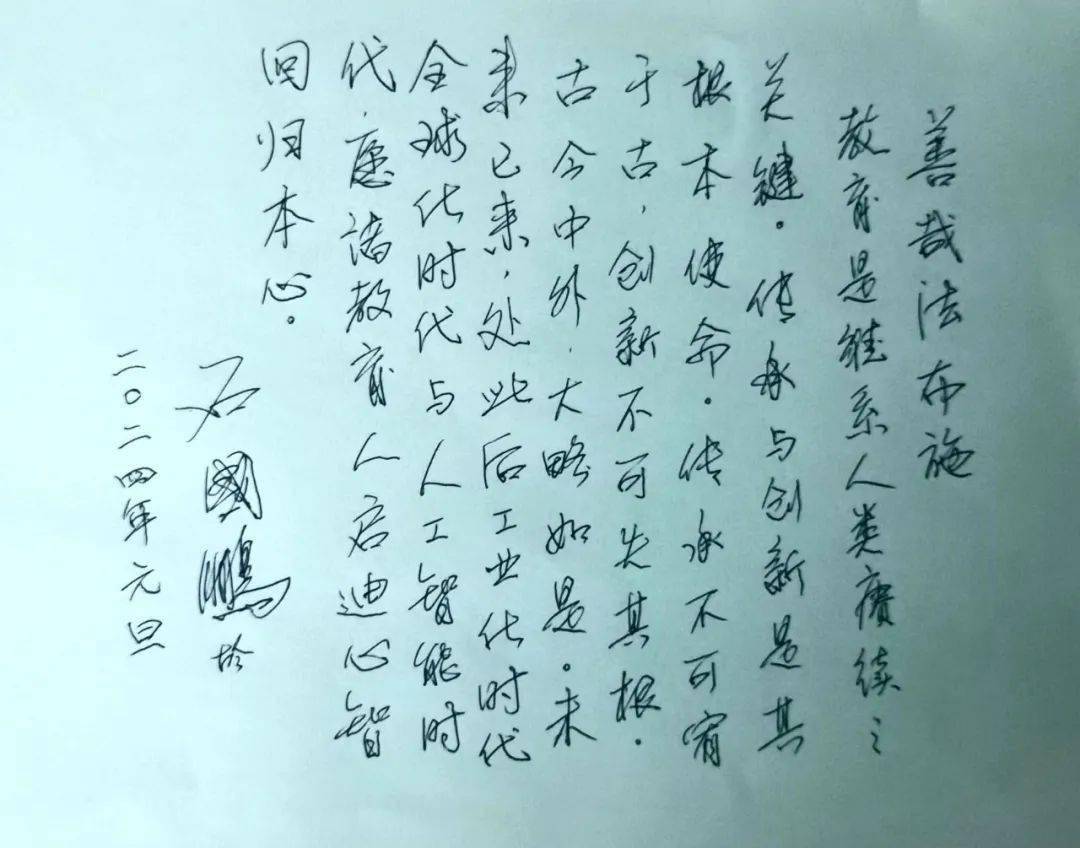 善哉法布施
教育是维系人类赓续之
关键。传承与创新是其
根本使命。传承不可宥
于古,创新不可失其根。
古今中外,大略如是。未
来已来,处此后工业化时代
全球化时代与人工智能时
代,愿诸教育人启迪心智
回归本心。
石國鵬於
二〇二四年元旦